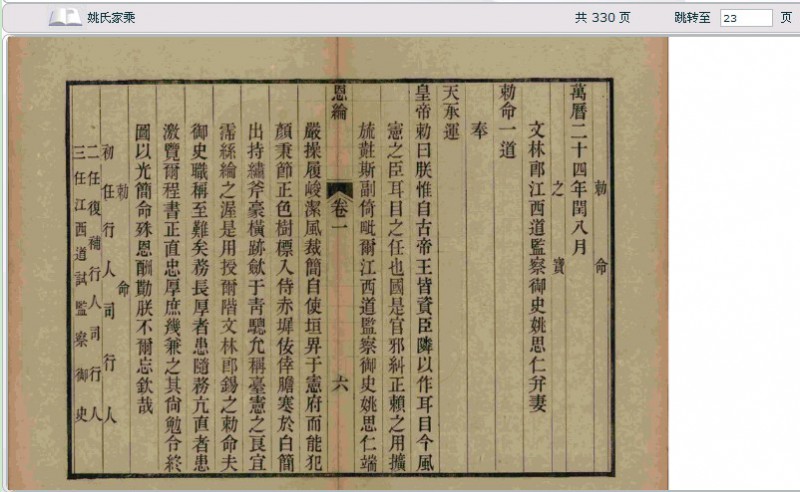 姚氏家乘
共 330 页
跳转至 23 页
勅命
萬曆二十四年閏八月
之寶
文林郎江西道監察御史姚思仁并妻
勅命一道
奉
天承運
皇帝勅曰朕惟自古帝王皆資臣隣以作耳目今風
憲之臣耳目之任也國是官邪糾正賴之用擴
旒黈斯副倚毗爾江西道監察御史姚思仁端
恩綸
卷一
六
嚴操履峻潔風裁簡自使垣畀于憲府而能犯
顏秉節正色樹標入侍赤墀佞倖膽寒於白簡
出持繡斧豪橫跡斂于青驄允稱臺憲之良宜
霈絲綸之渥是用授爾階文林郎錫之勅命夫
御史職稱至難矣務長厚者患隨務亢直者患
激覽爾程書正直忠厚庶幾兼之其尙勉令終
圖以光簡命殊恩酬勤朕不爾忘欽哉
勅命
初任行人司行人
二任復補行人司行人
三任江西道試監察御史